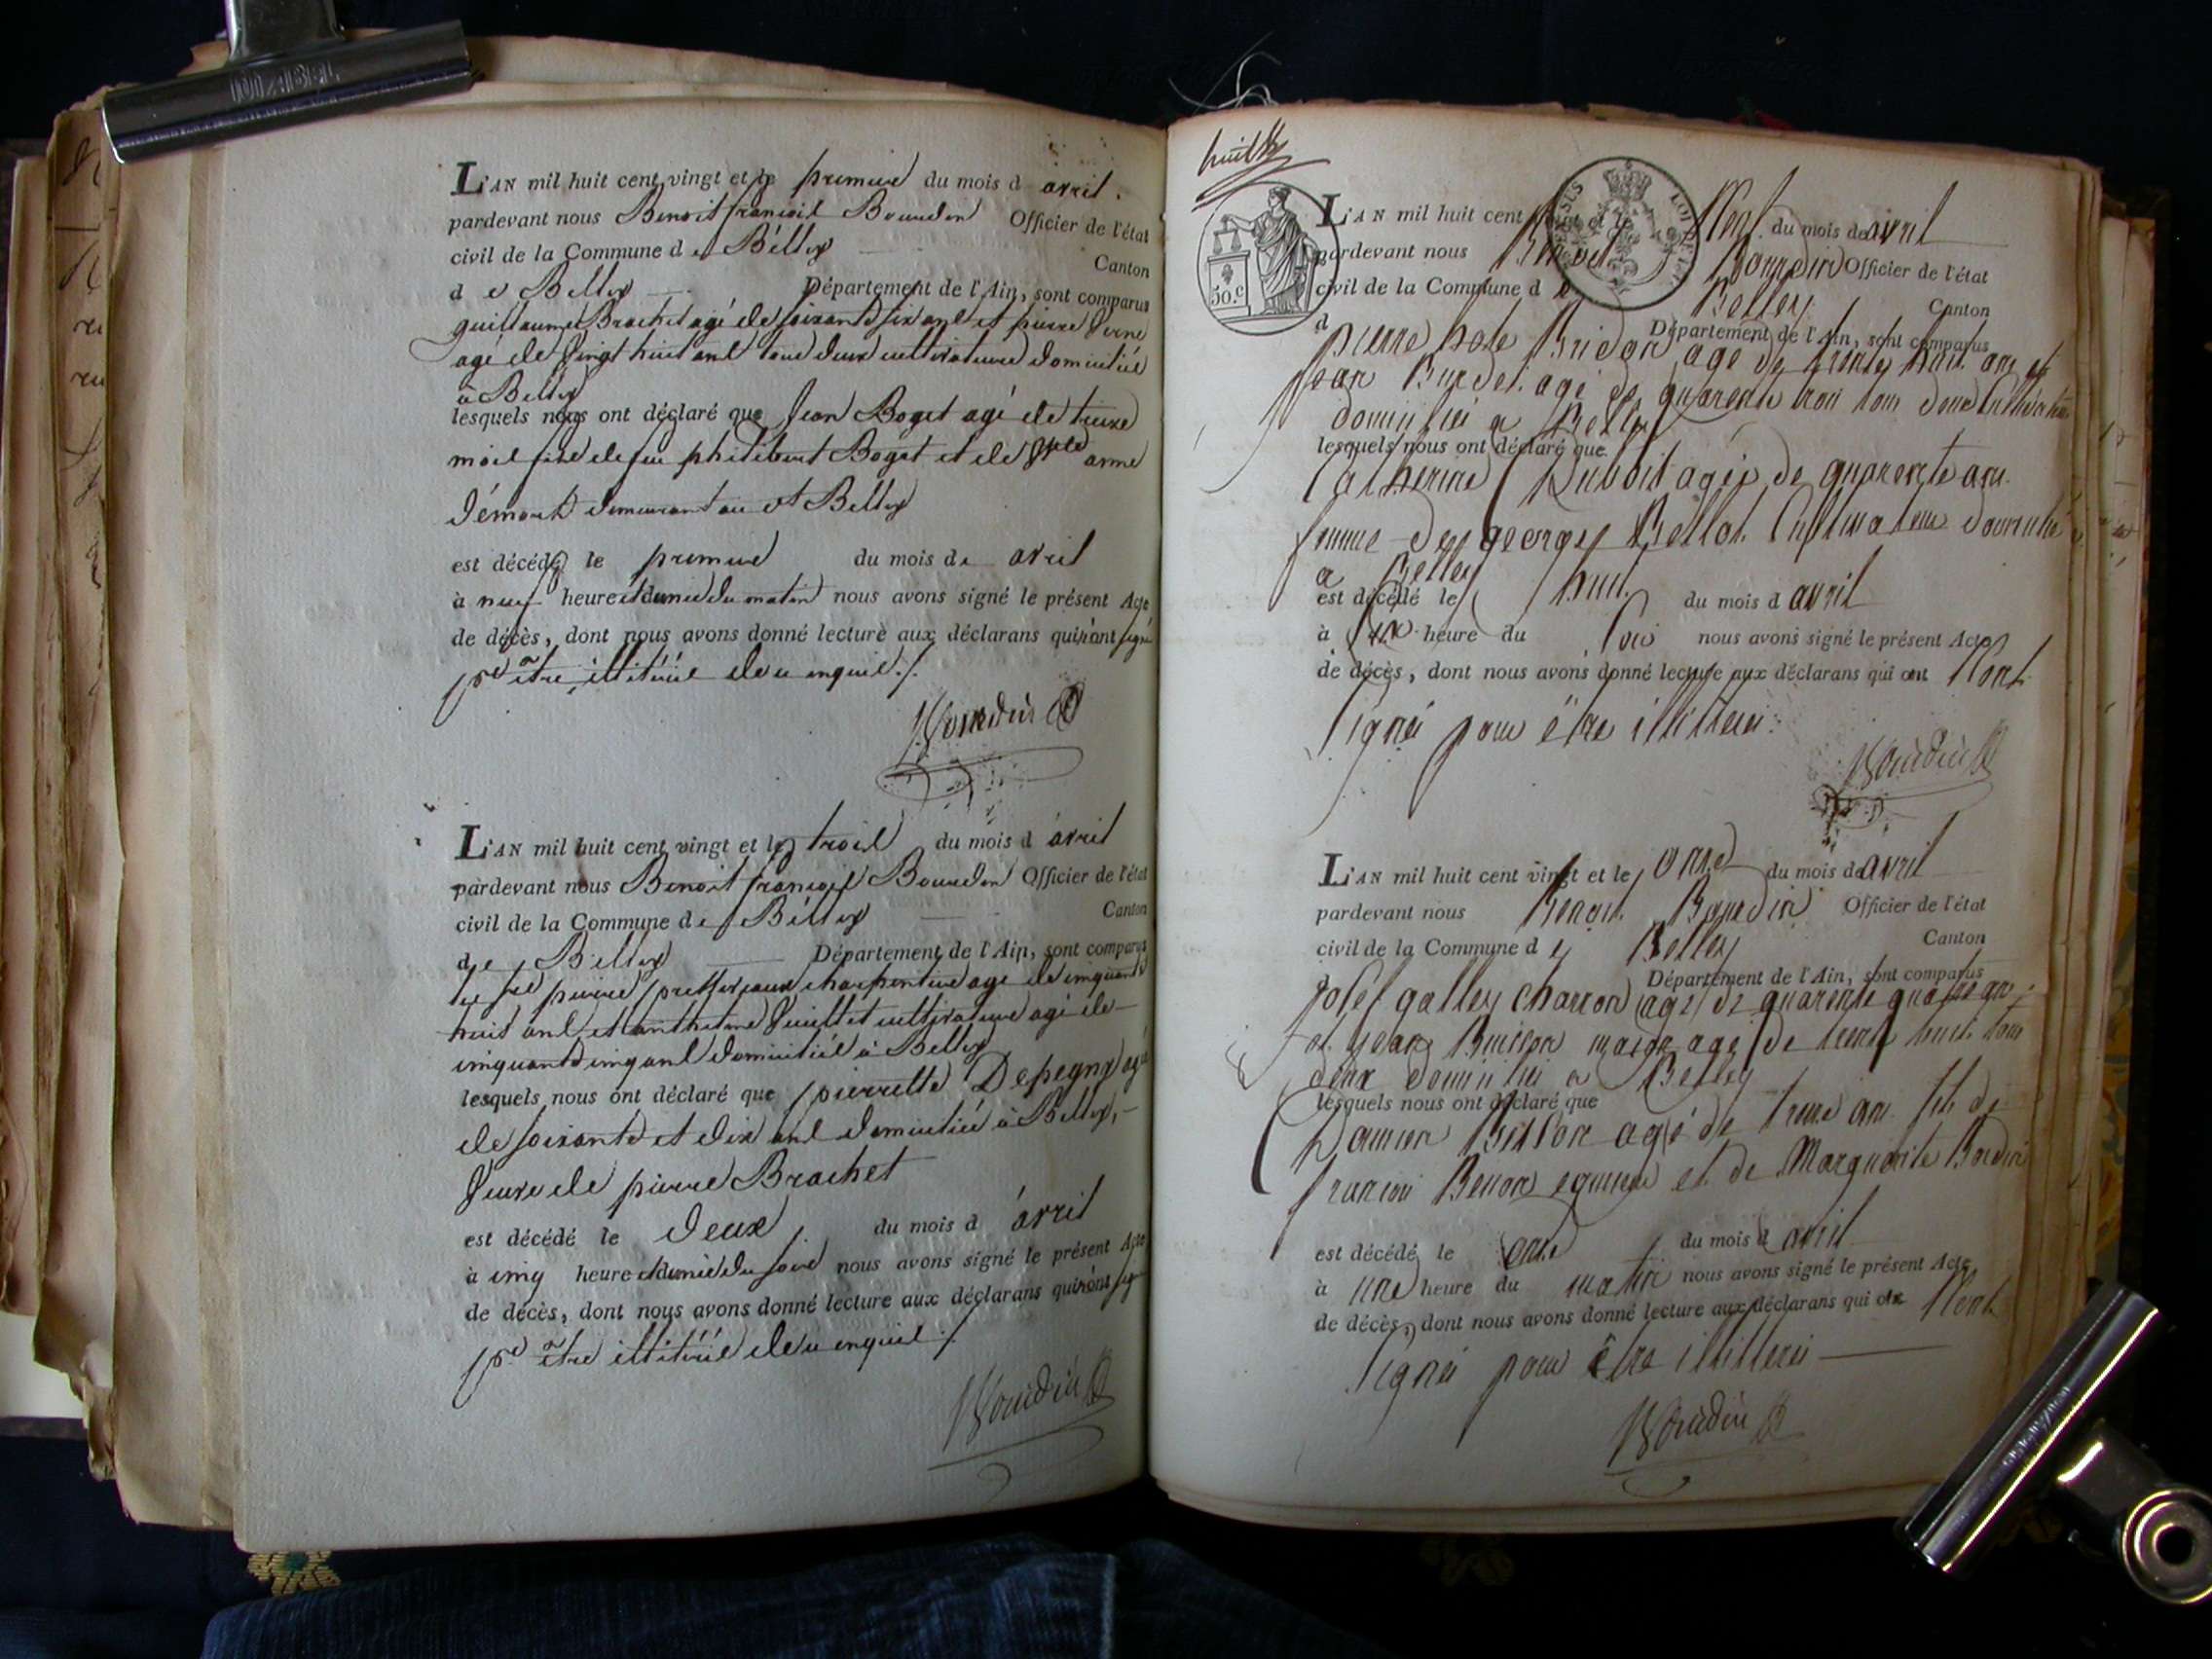 L'AN mil huit cent vingt et le premier du mois d avril.
pardevant nous Benoit françois Bourdin Officier de l'état
civil de la Commune d e Belley Canton
d e Belley Département de l'Ain, sont comparus
guillaume Brachet agé de soixante six ans et pierre
agé de vingt huit ans tous deux cultivateurs domiciliés
à Belley
lesquels nous ont déclaré que Jean Boget agé de treize
mois fils de feu philibert Boget et de anne
demeurant au dt Belley
est décédé le premier du mois de avril
à neuf heure et demie du matin nous avons signé le présent Acte
de décès, dont nous avons donné lecture aux déclarans qui n'ont signé
pr être illitérés de ce enquis ./.
Bourdin
L'AN mil huit cent vingt et le trois du mois d avril
pardevant nous Benoit françois Bourdin Officier de l'état
civil de la Commune d e Belley Canton
d e Belley Département de l'Ain, sont comparus
pierre charpentier agé de cinquante
huit ans et anthelme cultivateur agé de
cinquante cinq ans domiciliés à Belley
lesquels nous ont déclaré que pierrette Depegny agée
de soixante et dix ans domiciliée à Belley,
veuve de pierre Brachet
est décédé le deux du mois d avril
à cinq heure et demie du soir nous avons signé le présent Acte
de décès, dont nous avons donné lecture aux déclarans qui n'ont signé
pr être illitérés de ce enquis ./.
Bourdin
huit
50.c
L'AN mil huit cent vingt et le neuf du mois de avril
pardevant nous Benoit Bourdin Officier de l'état
civil de la Commune d e Belley Canton
d Département de l'Ain, sont comparus
pierre Bridon agé de trente huit ans et
jean Burdet agé de quarante trois tous deux Cultivateurs
domiciliés a Belley
lesquels nous ont déclaré que
Catherine Dubois agée de quarente ans
femme de georges Bellot Cultivateur domicilié
a Belley
est décédé le huit du mois d avril
à six heure du soir nous avons signé le présent Acte
de décès, dont nous avons donné lecture aux déclarans qui ont Nont
Signés pour être illitterés
Bourdin
L'AN mil huit cent vingt et le onze du mois de avril
pardevant nous Benoit Bourdin Officier de l'état
civil de la Commune d e Belley Canton
d Département de l'Ain, sont comparus
Josef galley charron agé de quarente quatre ans
et jean Buisson agé de trente huit tous
deux domiciliés a Belley
lesquels nous ont déclaré que
agé de treize ans fils de
françois et de Marguerite Bordin
est décédé le onze du mois d avril
à une heure du matin nous avons signé le présent Acte
de décès, dont nous avons donné lecture aux déclarans qui ont Nont
Signés pour être illitterés
Bourdin